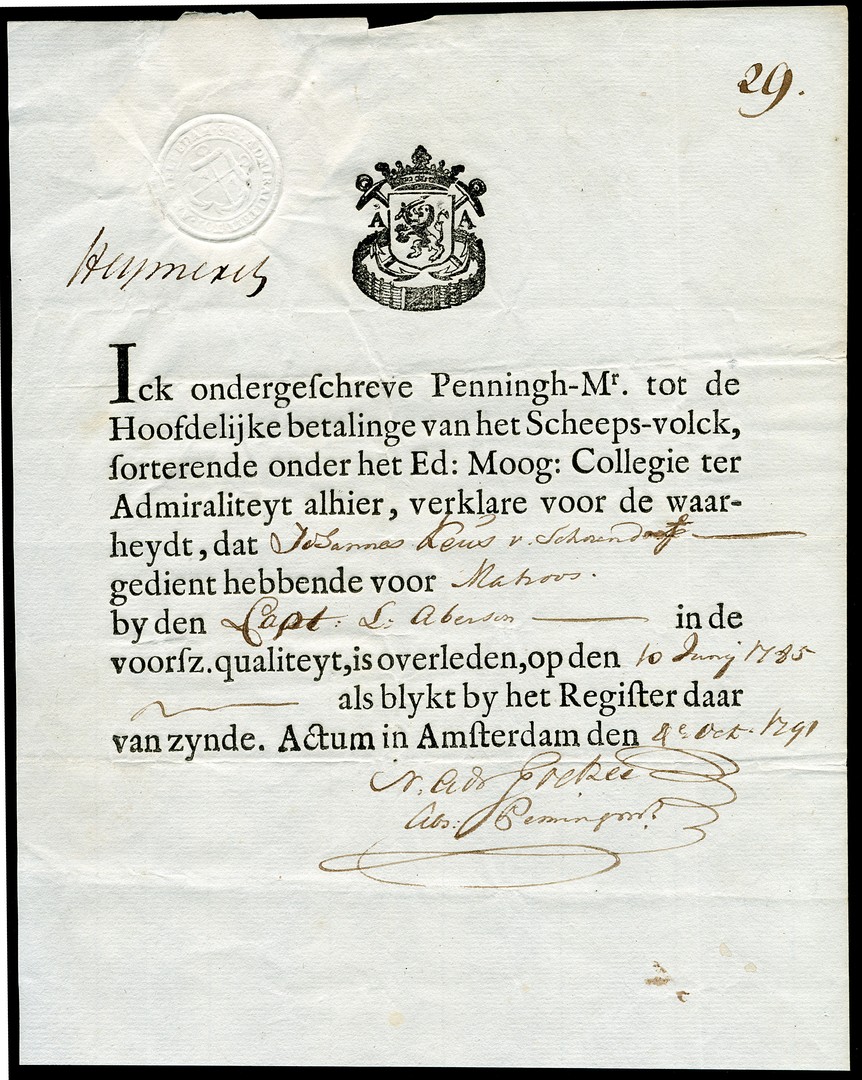 29.
A A
Ick ondergeſchreve Penningh-Mr. tot de
Hoofdelijke betalinge van het Scheeps-volck,
ſorterende onder het Ed: Moog: Collegie ter
Admiraliteyt alhier, verklare voor de waar-
heydt, dat Johannes Keus v. Schorendorff
gedient hebbende voor Matroos.
by den Capt: L: Aberson in de
voorſz. qualiteyt, is overleden, op den 10 Junij 1785
als blykt by het Regiſter daar
van zynde. Actum in Amſterdam den 4e Oct. 1791
N. Adr
Abs: Penningmr.